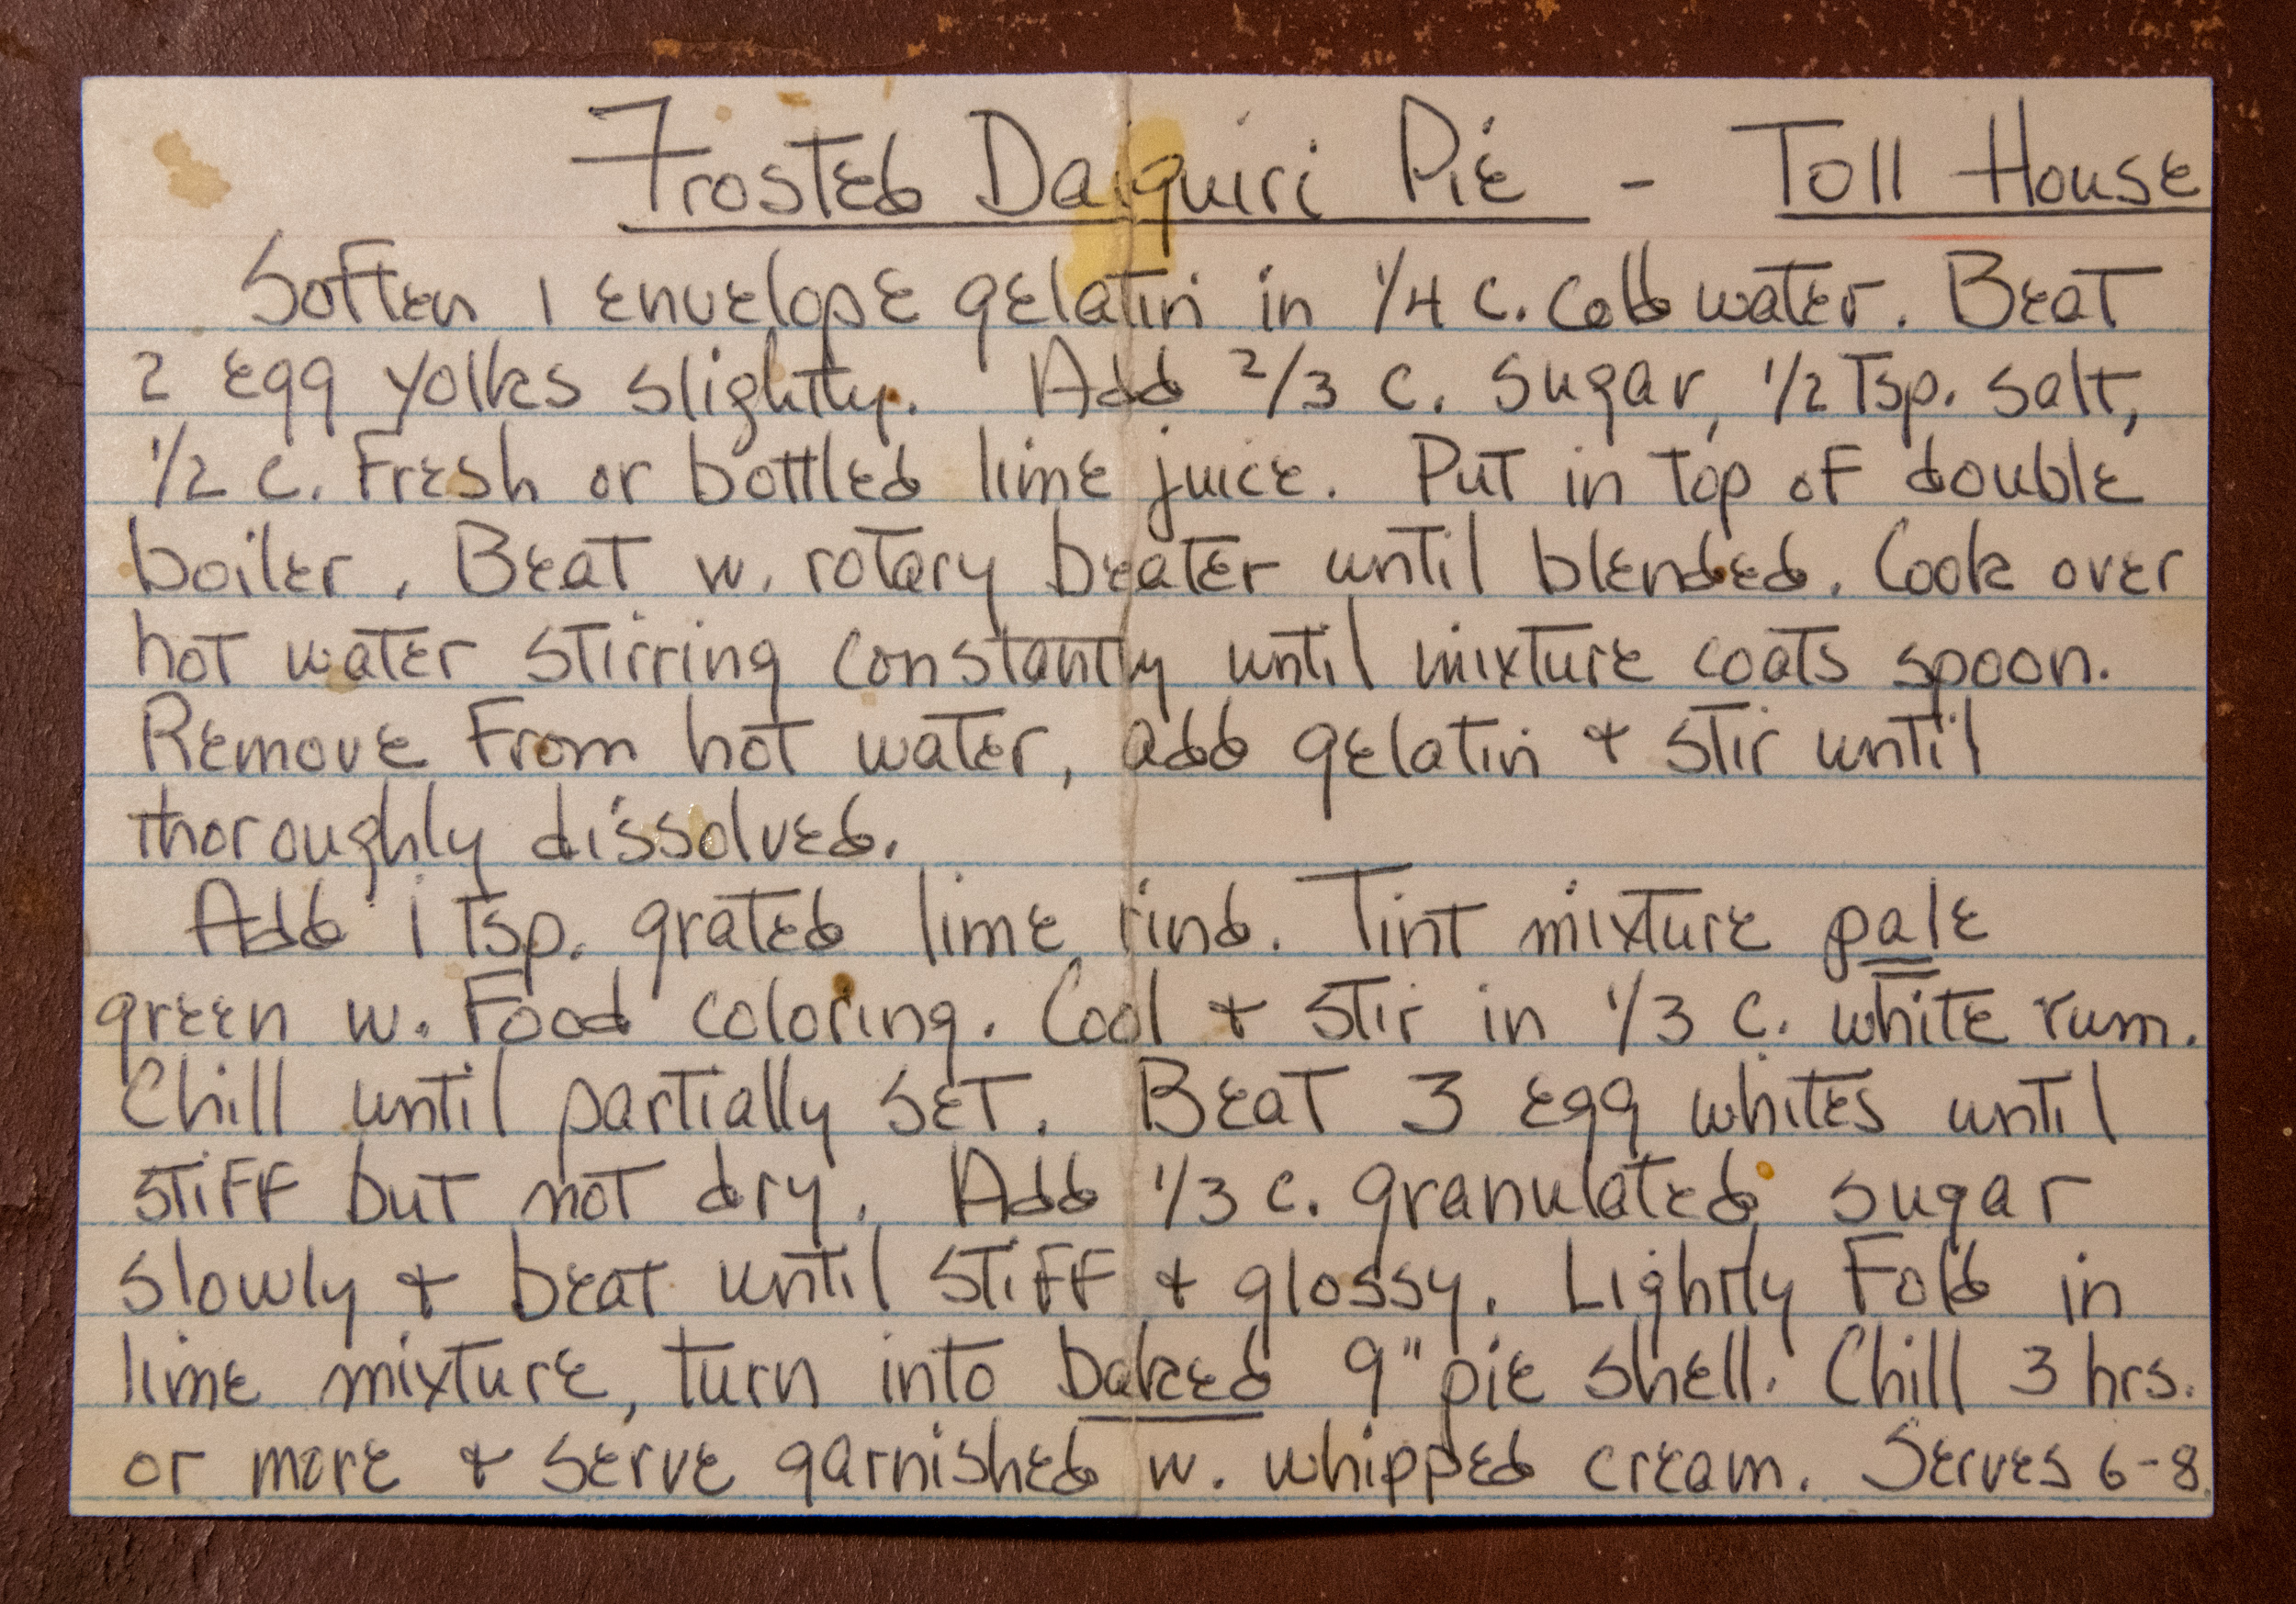 Frosted Daiquiri Pie - Toll House
Soften 1 envelope gelatin in 1/4 c. cold water. Beat
2 egg yolks slightly. Add 2/3 c. sugar, 1/2 Tsp. salt,
1/2 c. Fresh or bottled lime juice. Put in top of double
boiler. Beat w. rotary beater until blended. Cook over
hot water stirring constantly until mixture coats spoon.
Remove From hot water, add gelatin & stir until
thoroughly dissolved.
Add 1 Tsp. grated lime rind. Tint mixture pale
green w. Food coloring. Cool & stir in 1/3 c. white rum.
Chill until partially set. Beat 3 egg whites until
stiff but not dry. Add 1/3 c. granulated sugar
slowly & beat until stiff & glossy. Lightly Fold in
lime mixture, turn into baked 9" pie shell. Chill 3 hrs.
or more & serve garnished w. whipped cream. Serves 6-8.